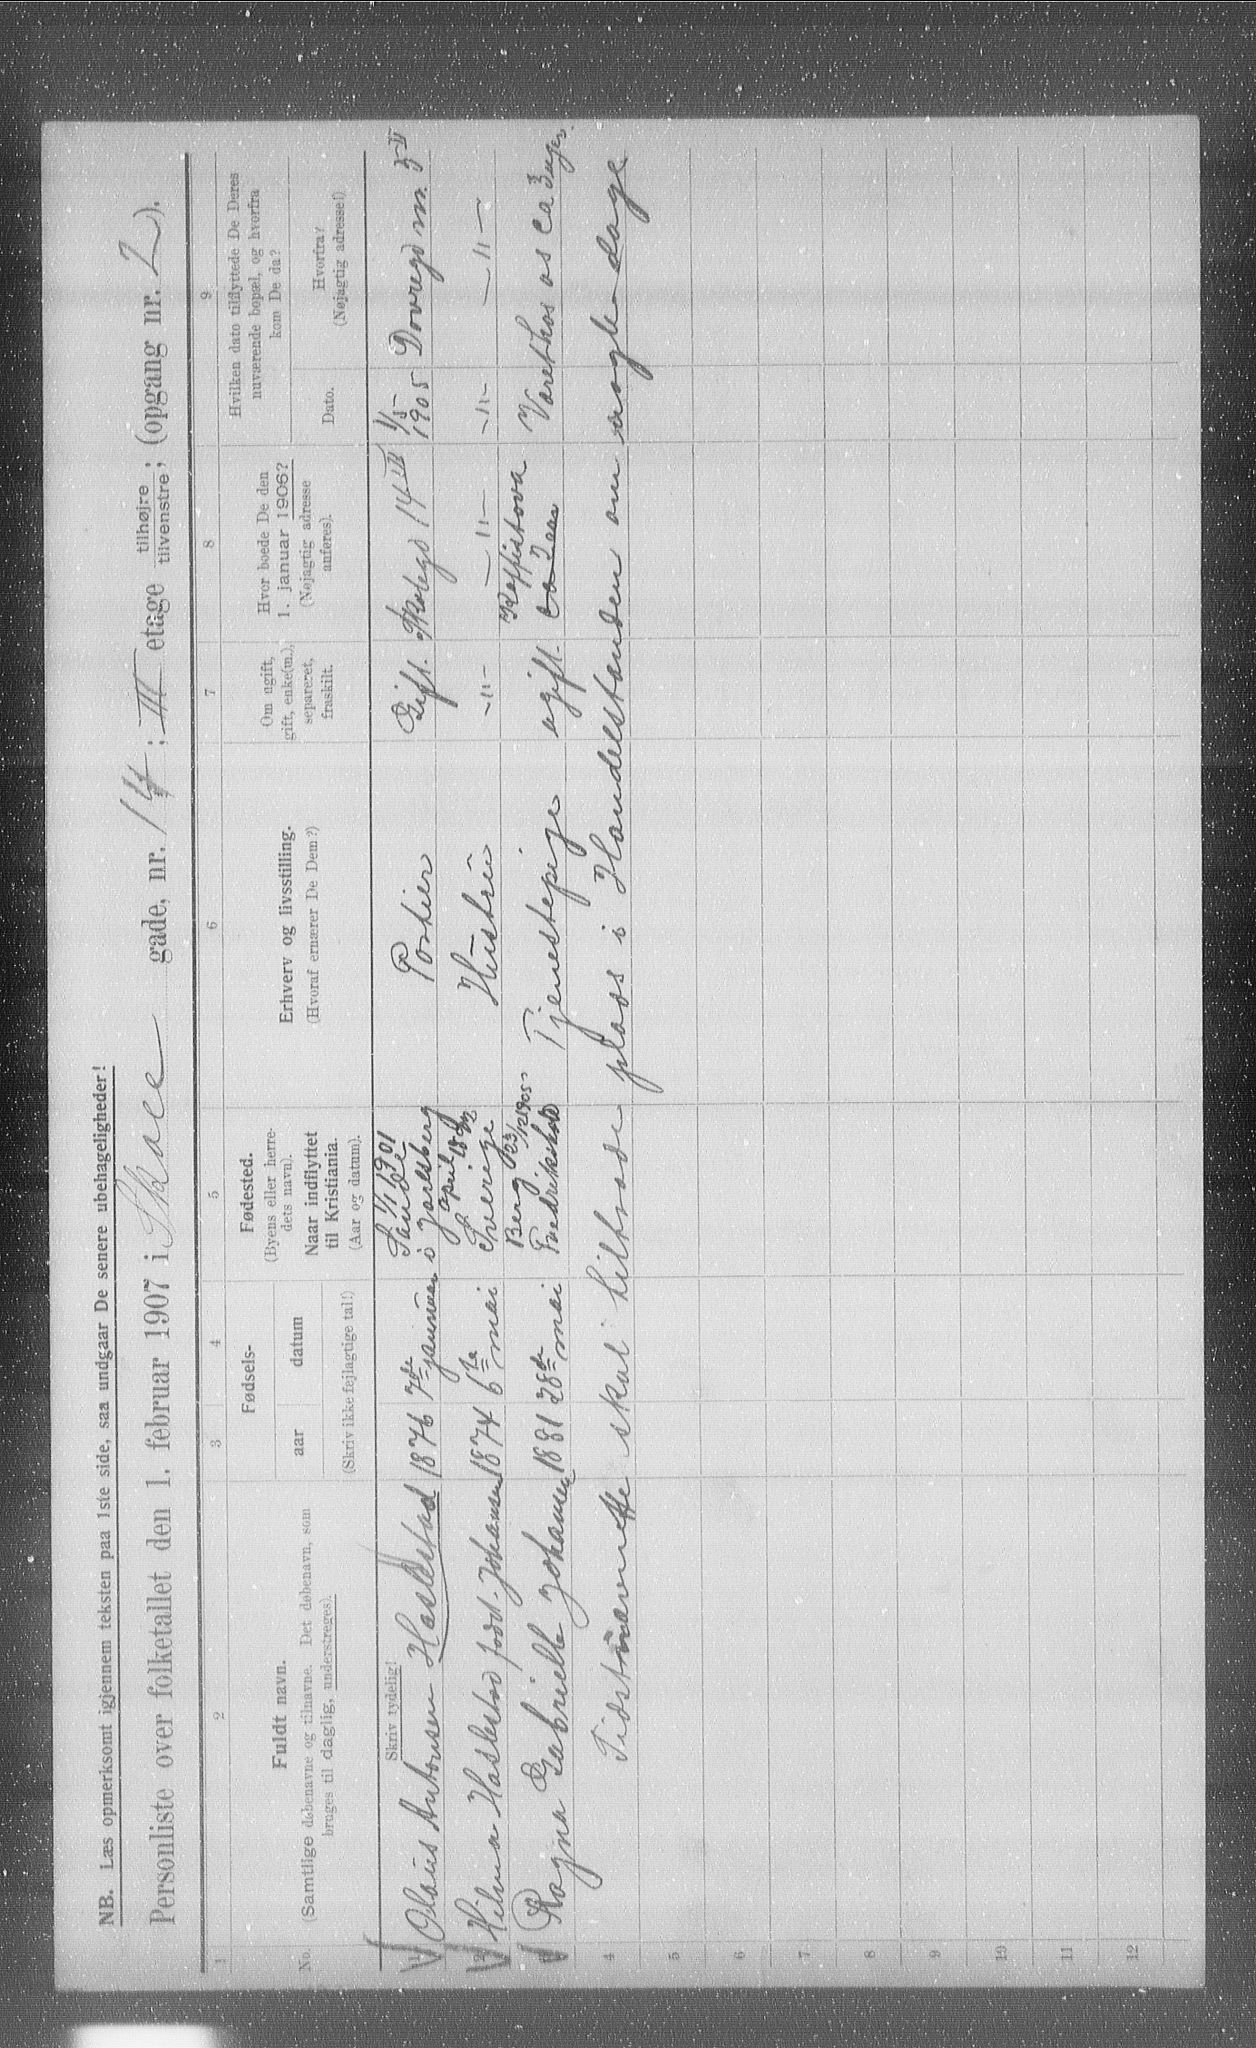 NB. Læs opmerksomt igjennem teksten paa 1ste side, saa undgaar De senere ubehageligheder!
Personliste over folketallet den 1. februar 1907 i Skole gade, nr. 14; III etage tilhøjre tilvenstre; (opgang nr. 2).
1 2 3 4 5 6 7 8 9
No.
Fuldt navn.
(Samtlige døbenavne og tilnavne. Det døbenavn, som
bruges til daglig, understreges).
Fødsels-
aar datum
(Skriv ikke fejlagtige tal!)
Fødested.
(Byens eller herre-
dets navn).
Naar indflyttet
til Kristiania.
(Aar og datum).
Erhverv og livsstilling.
(Hvoraf ernærer De Dem?)
Om ugift,
gift, enke(m.),
separeret,
fraskilt.
Hvor boede De den
1. januar 1906?
(Nøjagtig adresse
anføres).
Hvilken dato tilflyttede De Deres
nuværende bopæl, og hvorfra
kom De da?
Dato.
Hvorfra?
(Nøjagtig adresse!)
Skriv tydelig!
1 Olaus Antonsen Haslestad 1876 7de januar Sande i Jarlsberg 1/1 1901 Portier Gift. Skolegd 14 III 1/5 1905 Dovregd nr. 3 IV
2 Hilma Haslestad født Johansen 1874 6te mai Sverige april Hustru -"- -"- -"- -"-
3 Ragna Gabrielle Johansen 1881 28de mai Berg Fredrikshald 23/12 1905 Tjenestepige ugift. Været hos os ca 3 uger.
4 skal tiltræde plads i Handelstanden om nogle dage
5
6
7
8
9
10
11
12